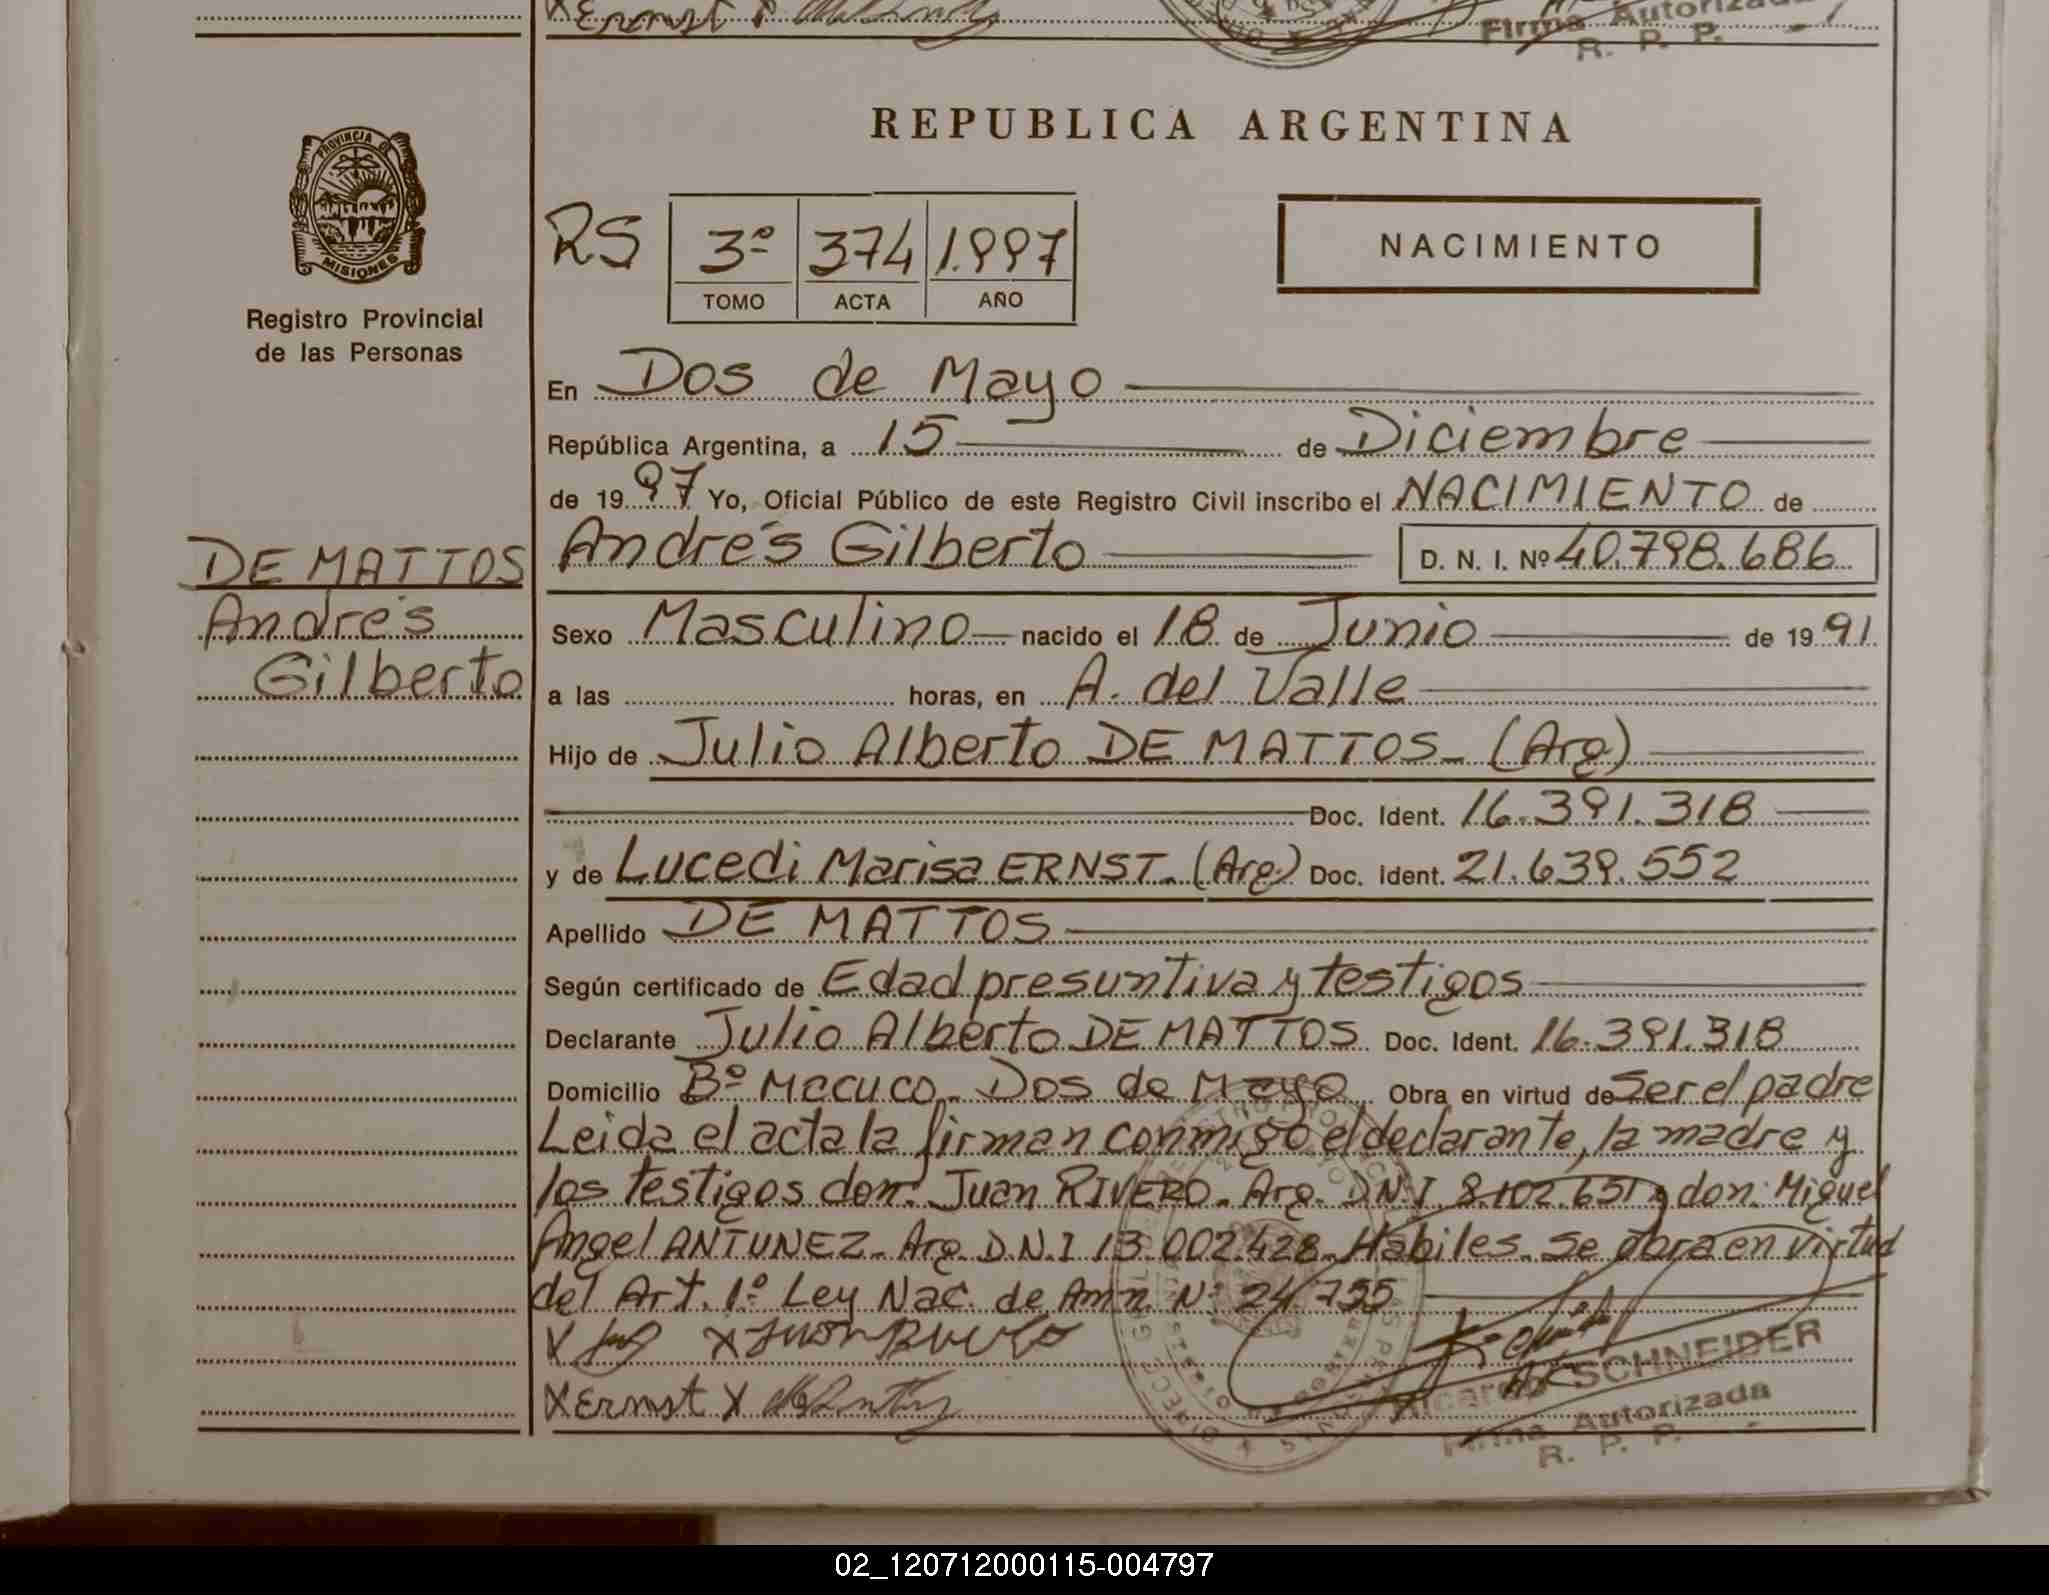 Ernst
Firma Autorizada
R. P. P.
REPUBLICA ARGENTINA
PROVINCIA D
MISIONES
Registro Provincial
de las Personas
RS 3º 374 1.997
TOMO ACTA AÑO
NACIMIENTO
En Dos de Mayo
República Argentina, a 15 de Diciembre
de 1997 Yo, Oficial Público de este Registro Civil inscribo el NACIMIENTO de
DE MATTOS
Andrés
Gilberto
Andrés Gilberto D. N. I. Nº 40.798.686
Sexo Masculino nacido el 18 de Junio de 1991
a las horas, en A. del Valle
Hijo de Julio Alberto DE MATTOS_ (Arg)
Doc. Ident. 16.391.318
y de Lucedi Marisa ERNST_ (Arg.) Doc. Ident. 21.639.552
Apellido DE MATTOS
Según certificado de Edad presuntiva y testigos
Declarante Julio Alberto DE MATTOS Doc. Ident. 16.391.318
Domicilio Bº Mccuco_ Dos de Mayo Obra en virtud de Ser el padre
Leida el acta la firman conmigo el declarante, la madre y
los testigos don: Juan RIVERO_ Arg. D.N.I 8.102.651 y don: Miguel
Angel ANTUNEZ_ Arg. D.N.I 13.002.428_ Habiles_ Se obra en virtud
del Art. 1º Ley Nac. de Amn. Nº 24.755
X X Juan Rivero
X Ernst X
Ricardo SCHNEIDER
Firma Autorizada
R. P. P.
02_120712000115-004797